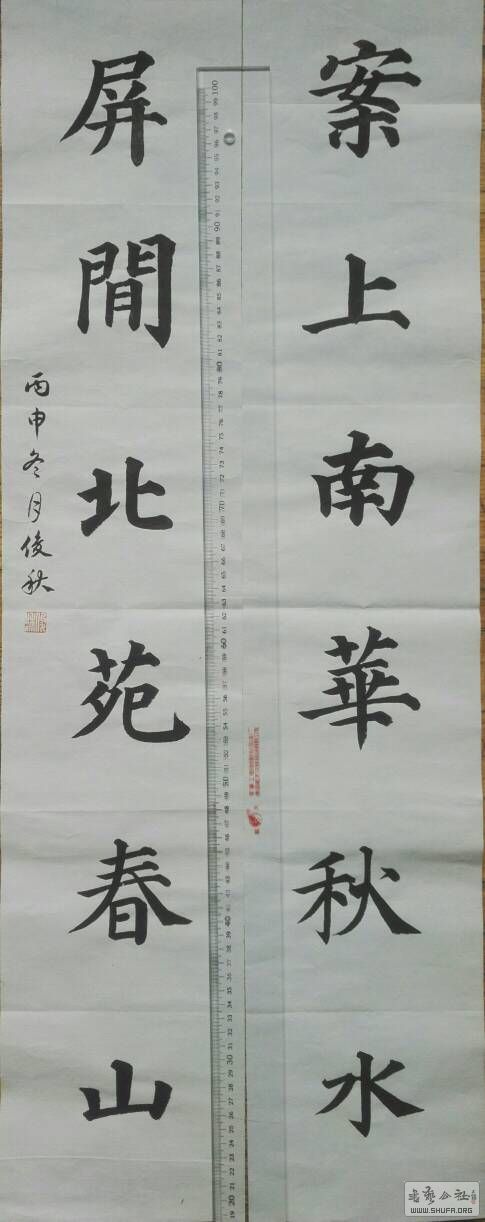 案上南華秋水
屏間北苑春山
丙申冬月俊秋
書藝公社
WWW.SHUFA.ORG